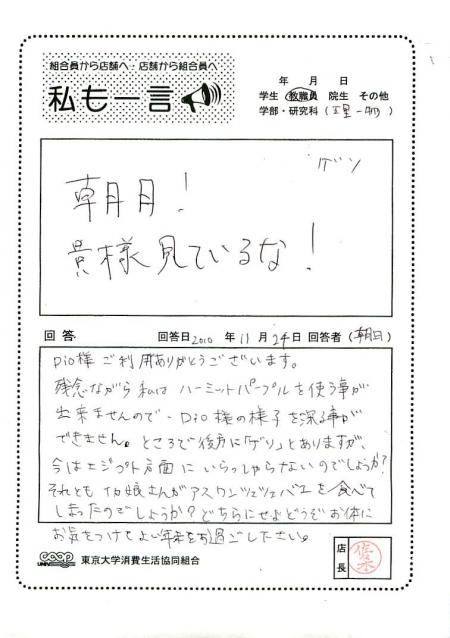 組合員から店舗へ・店舗から組合員へ
私も一言
年 月 日
学生 教職員 院生 その他
学部・研究科（
ゲソ
朝日！
貴様見ているな！
回答 回答日2010年11月24日 回答者（朝日）
Dio様ご利用ありがとうございます。
残念ながら私はハーミットパープルを使う事が
出来ませんので、Dio様の様子を探る事が
できません。ところで後方に「ゲソ」とありますが、
今はエジプト方面にいらっしゃらないのでしょうか?
それともイカ娘さんがアスワンツェツェバエを食べて
しまったのでしょうか?どちらにせよどうぞお体に
お気をつけてよい年末をお過ごし下さい。
UNIV CO-OP 東京大学消費生活協同組合
店長